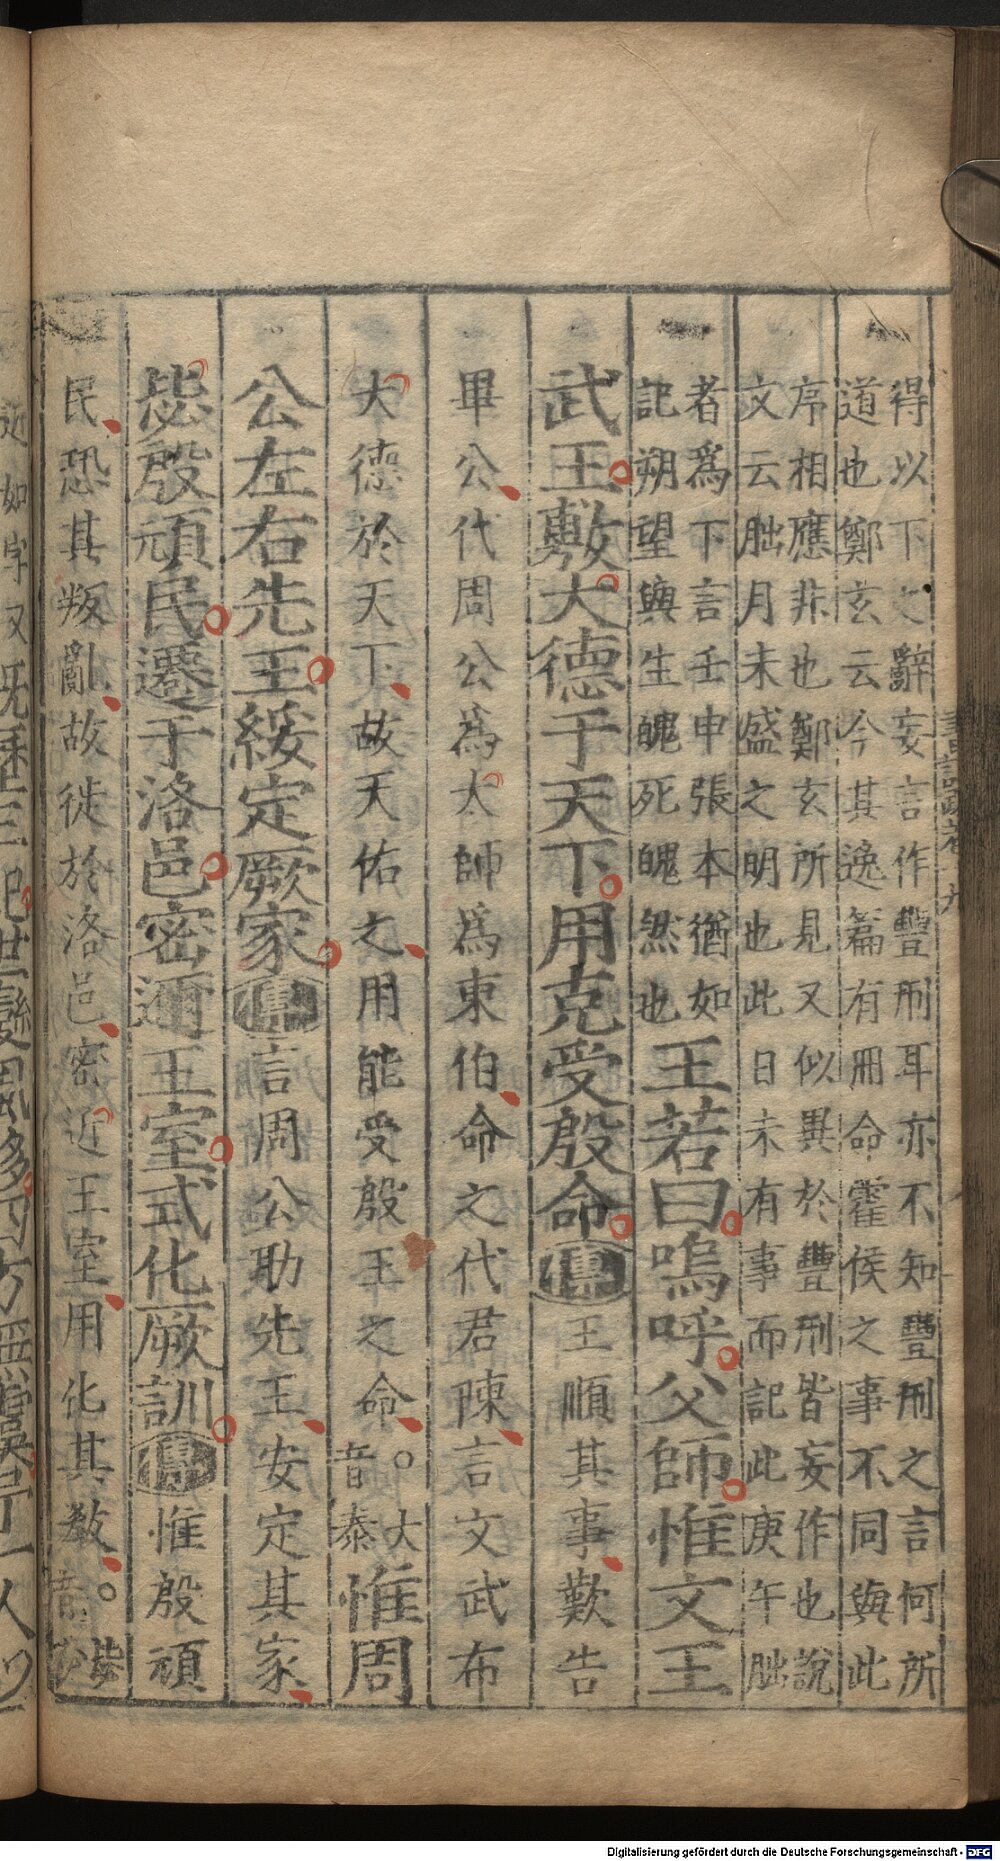 得以下之辭妄言作豐刑耳亦不知豐刑之言何所
道也鄭玄云今其逸篇有冊命霍侯之事不同與此
序相應非也鄭玄所見又似異於豐刑皆妄作也說
文云朏月未盛之明也此日未有事而記此庚午朏
者爲下言壬申張本猶如
記朔望與生魄死魄然也
王若曰嗚呼父師惟文王
武王敷大德于天下用克受殷命傳王順其事歎告
畢公代周公爲太師爲東伯命之代君陳言文武布
大德於天下故天佑之用能受殷王之命。大音泰惟周
公左右先王綏定厥家傳言周公助先王安定其家
毖殷頑民遷于洛邑密邇王室式化厥訓傳惟殷頑
民恐其叛亂故徙於洛邑密近王室用化其教。毖音
近如字又
人
Digitalisierung gefördert durch die Deutsche Forschungsgemeinschaft - DFG